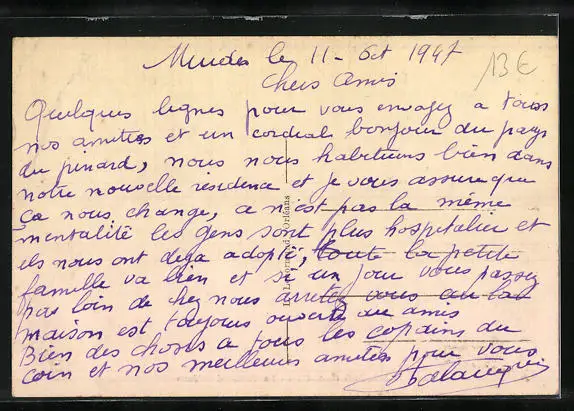 le 11 - Oct 1947
13 €
Chers Amis
Quelques lignes pour vous envoyez a tous
nos amities et un cordial bonjour du pays
du pinard, nous nous habituons bien dans
notre nouvelle residence et je vous assure que
Ça nous change, ce n'est pas la même
mentalité les gens sont plus hospitalier et
ils nous ont deja adopté, toute la petite
famille va bien et si un jour vous passez
pas loin de chez nous arretez vous car la
maison est toujours ouverte aux amis
Bien des choses a tous les copains du
coin et nos meilleurs amities pour vous
Orléans